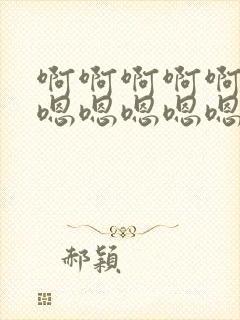 啊啊啊啊啊
嗯嗯嗯嗯嗯
郝颖